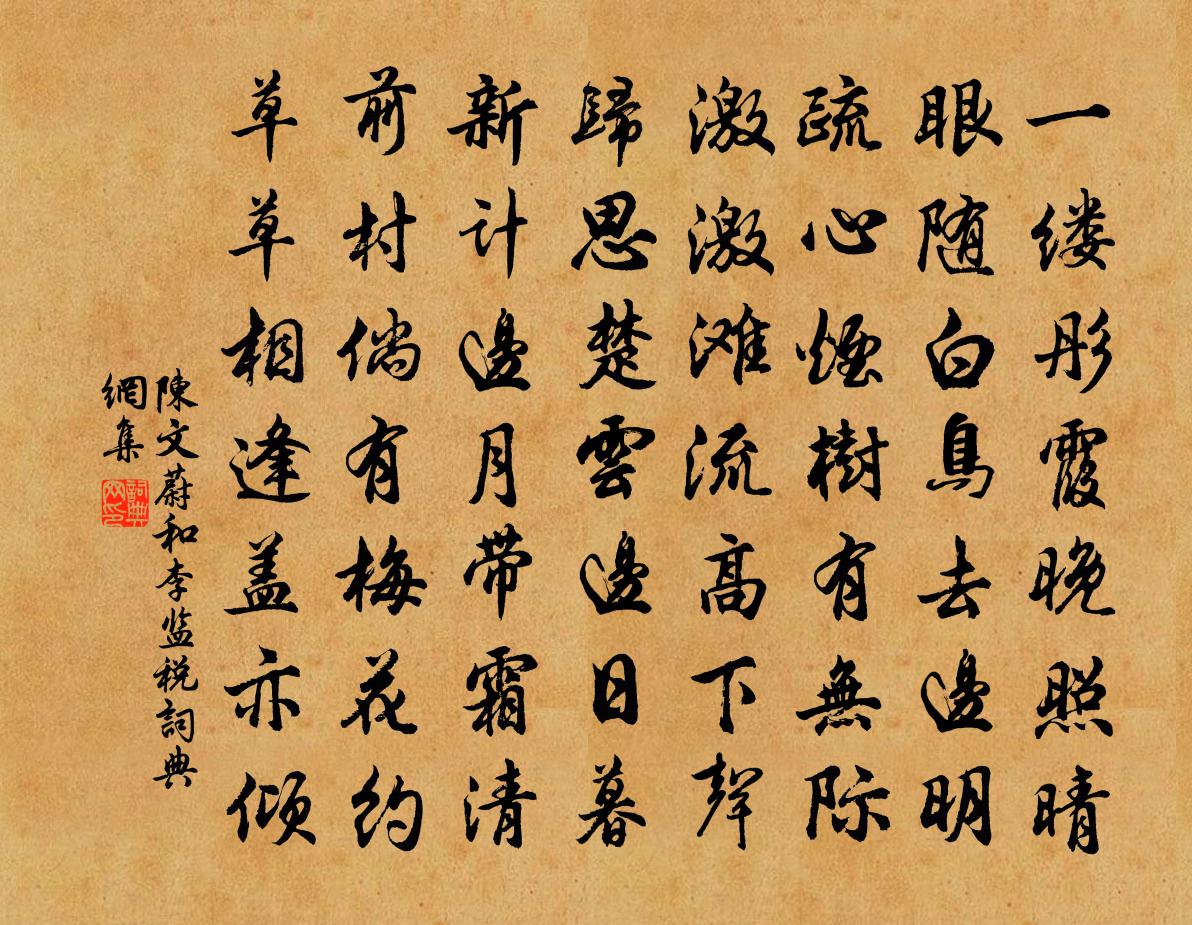 一缕彤霞晚照晴
眼随白鳥去邊明
疏心煙樹有無际
激激滩流高下聲
歸思楚雲邊日暮
新计邊月带霜清
前村倘有梅花约
草草相逢盖亦倾
陳文蔚和李监税詞典
網集
詞典网印